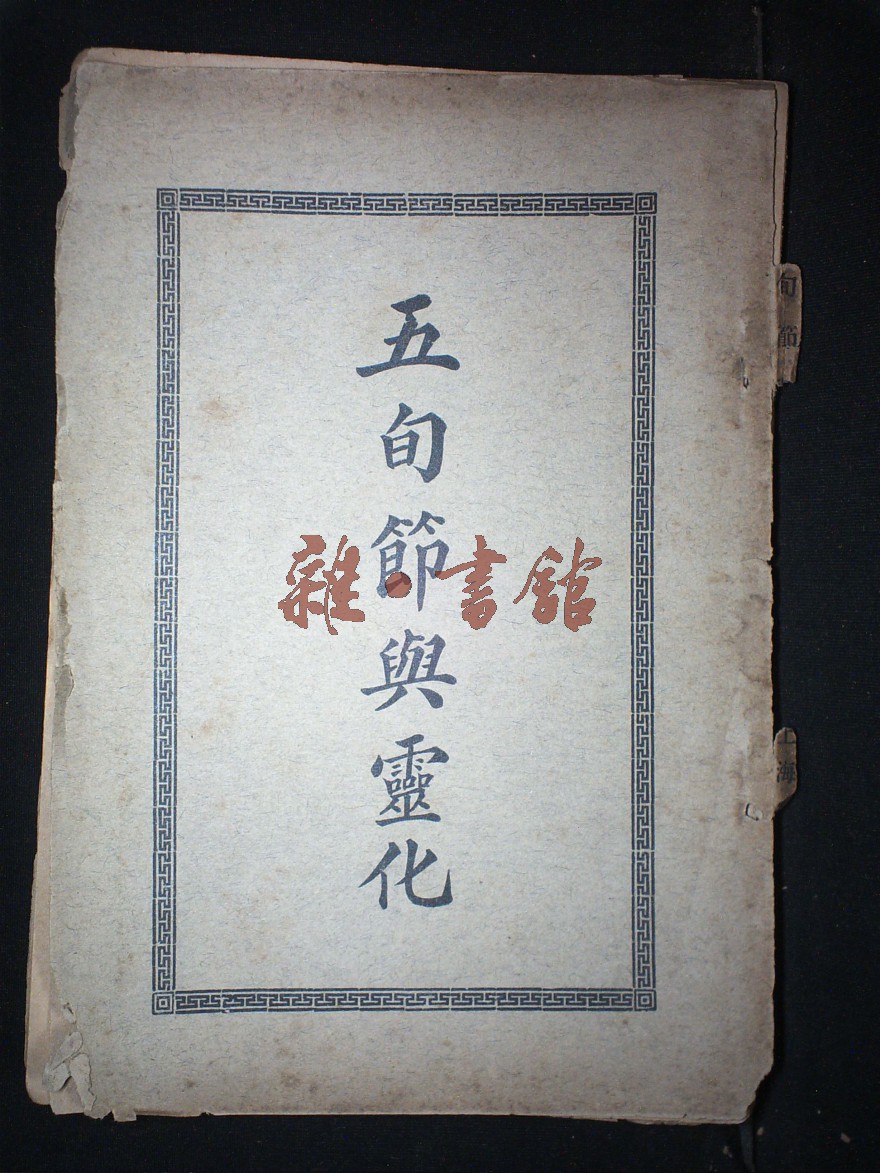 五旬節與靈化
雜·書館
旬節
上海